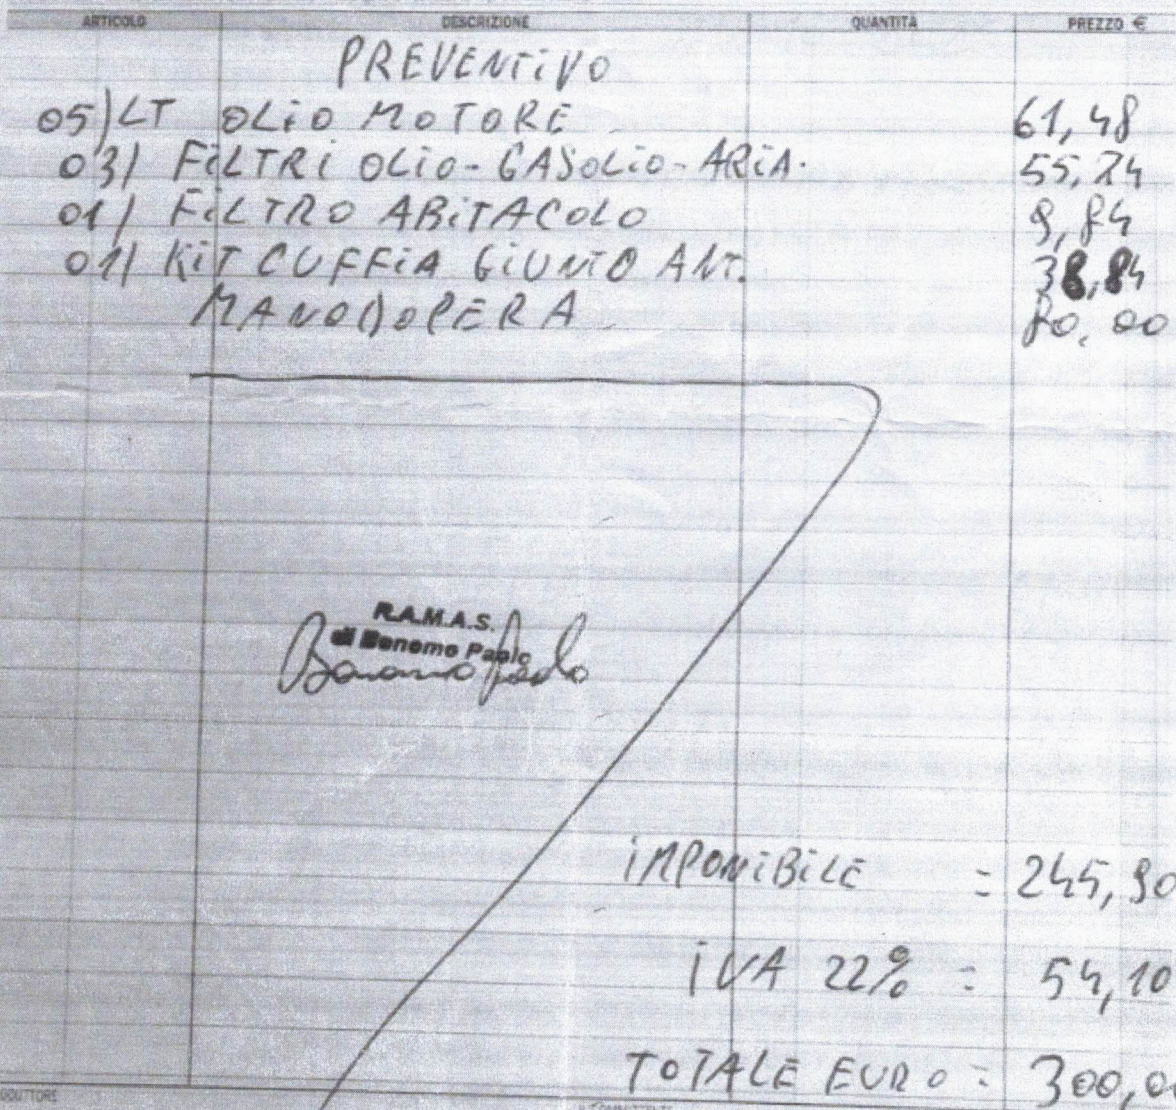 ARTICOLO DESCRIZIONE QUANTITÀ PREZZO €
PREVENTIVO
05) LT OLIO MOTORE 61,48
03) FILTRI OLIO-GASOLIO-ARIA. 55,74
01) FILTRO ABITACOLO 9,84
01) KIT CUFFIA GIUNTO ANT. 38,84
MANODOPERA 80,00
R.A.M.A.S.
di Bonomo Paolo
Bonomo Paolo
IMPONIBILE = 245,90
IVA 22% = 54,10
TOTALE EURO = 300,0